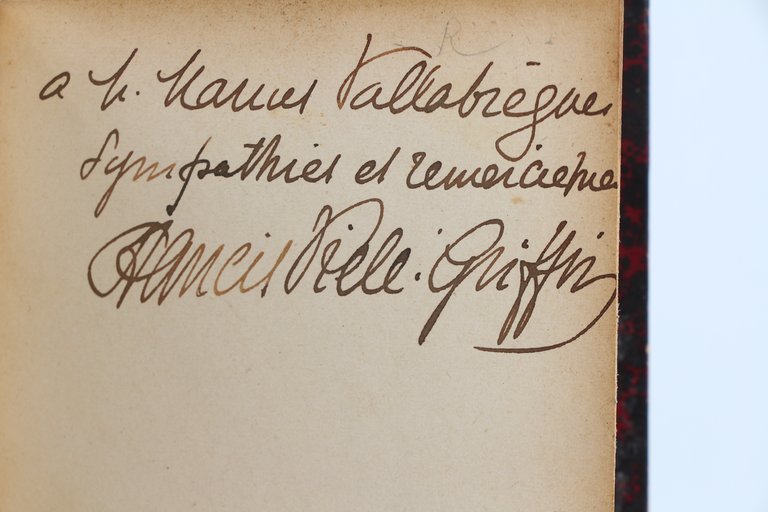 a M. Marius Vallabrègues
sympathies et remercieme
Francis Vielé-Griffin
R